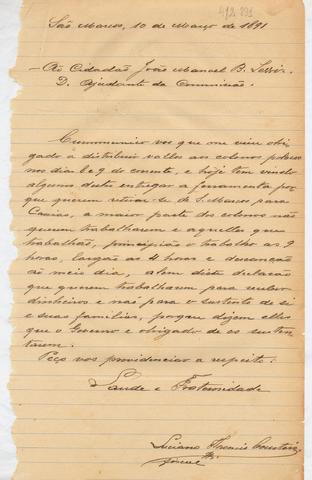 São Marcos, 10 de Março de 1891
Ao Cidadão João Manoel B.
D. Ajudante da Commissão.
Communico vos que me vira obri-
gado a distribuir valles aos colonos polacos
nos dias 1 e 9 do corrente, e hoje tem vindo
alguns destes entregar a ferramenta por
que querem retirar se de S. Marcos para
Caxias, a maior parte dos colonos não
querem trabalharem e aquelles que
trabalhão, principião o trabalho as 9
horas, largão as 4 horas e descanção
ao meio dia, alem disto declarão
que querem trabalharem para receber
dinheiros e não para o sustento de si
e suas familias, porque dizem elles
que o Governo é obrigado de os susten-
tarem.
Peço vos providenciar a respeito.
Saude e Fraternidade
Luciano